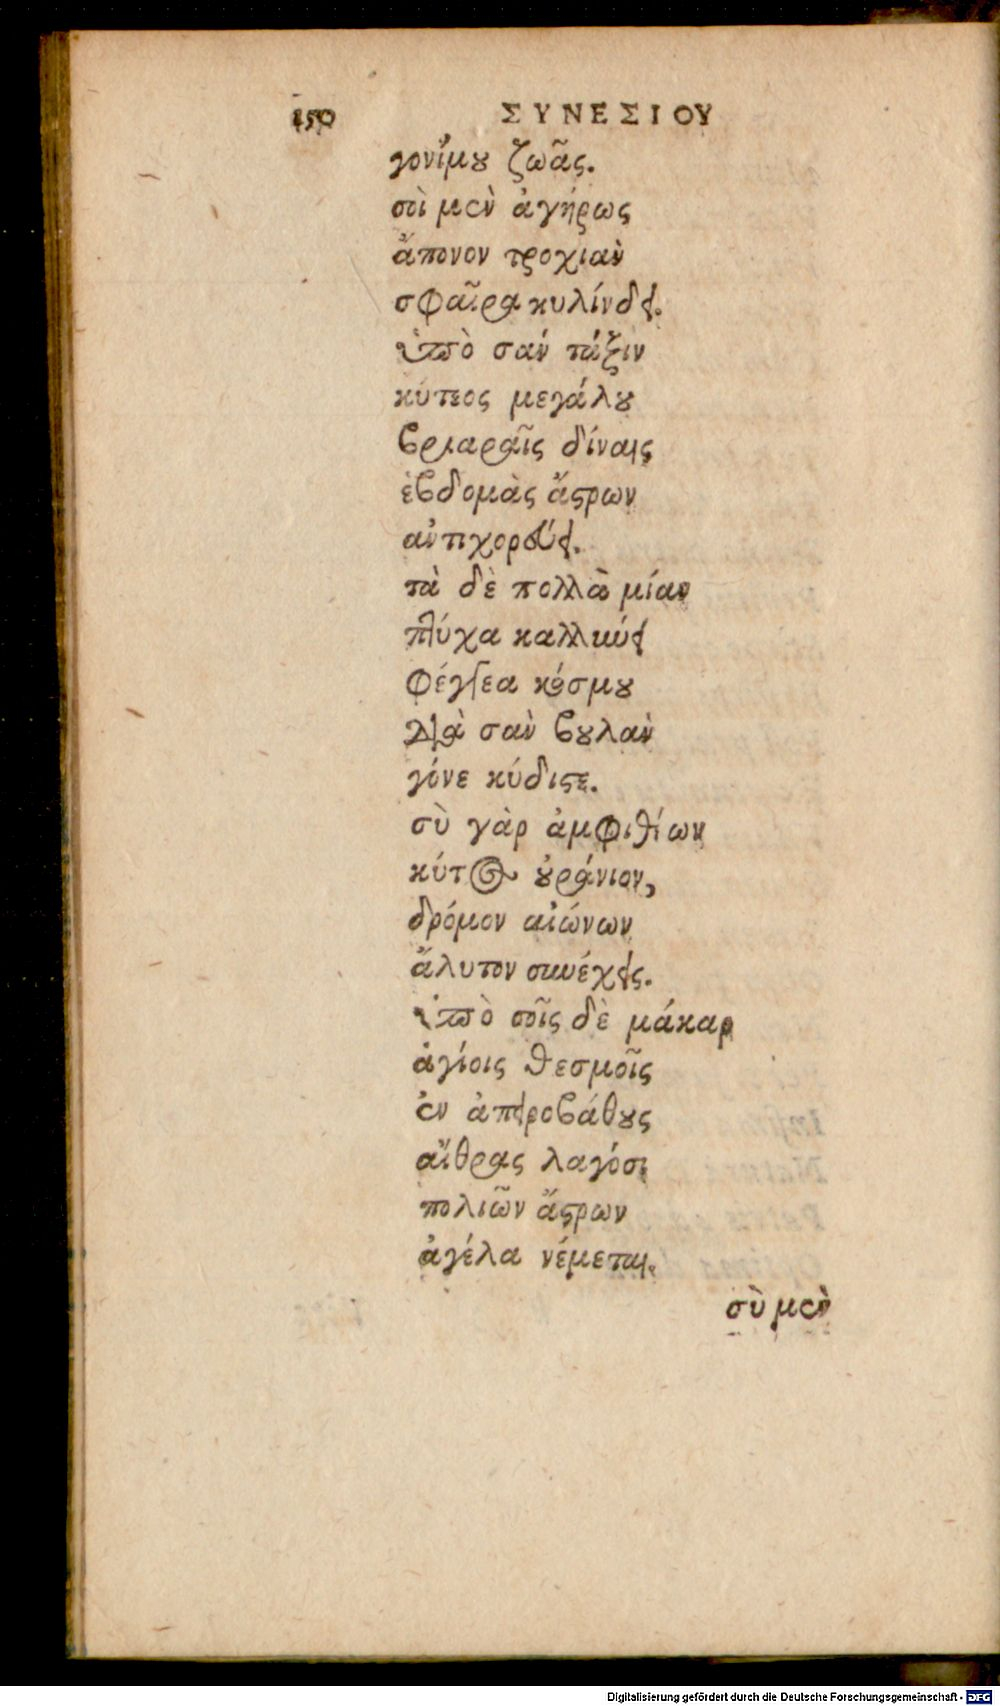 150 ΣΥΝΕΣΙΟΥ
γονίμου ζωᾶς.
σοὶ μὲν ἀγήρως
ἄπονον τροχιὰν
σφαῖρα κυλίνδει.
ὑπὸ σὰν τάξιν
κύτεος μεγάλου
βριαραῖς δίναις
ἑβδομὰς ἄστρων
ἀντιχορεύει.
τὰ δὲ πολλὰ μίαν
πτύχα καλλύνει
φέγγεα κόσμου
διὰ σὰν βουλὰν
γόνε κύδιστε.
σὺ γὰρ ἀμφιθέων
κύτος οὐράνιον,
δρόμον αἰώνων
ἄλυτον συνέχεις.
ὑπὸ σοῖς δὲ μάκαρ
ἁγίοις θεσμοῖς
ἐν ἀπειροβάθους
αἴθρας λαγόσι
πολιῶν ἄστρων
ἀγέλα νέμεται.
σὺ μὲν
Digitalisierung gefördert durch die Deutsche Forschungsgemeinschaft - DFG